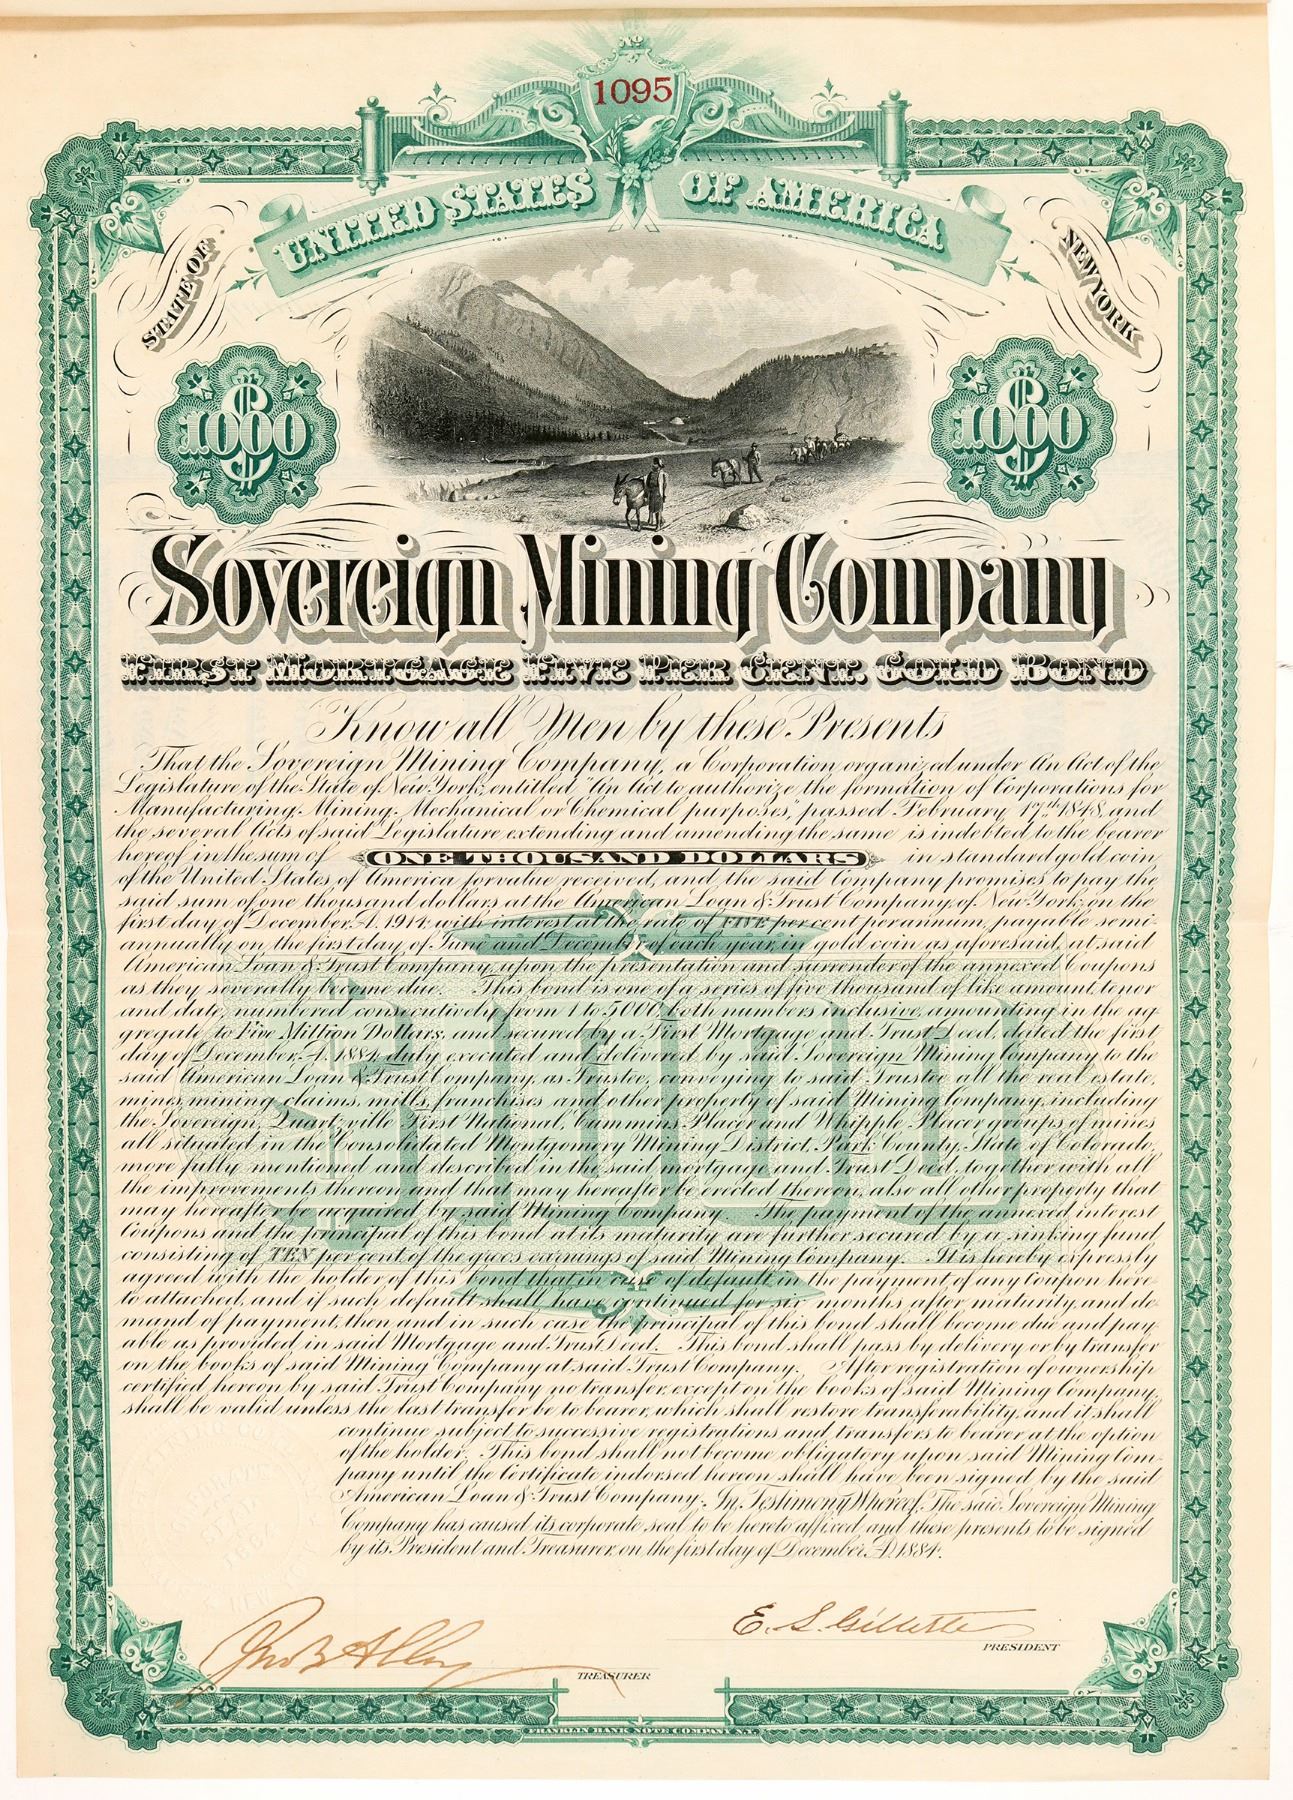 No
1095
UNITED STATES OF AMERICA
STATE OF
NEW YORK
$1000
$1000
Sovereign Mining Company
FIRST MORTGAGE FIVE PER CENT. GOLD BOND
Know all Men by these Presents
That the Sovereign Mining Company, a Corporation organized under An Act of the
Legislature of the State of New York, entitled "An Act to authorize the formation of Corporations for
Manufacturing, Mining, Mechanical or Chemical purposes," passed February 17th 1848, and
the several Acts of said Legislature extending and amending the same is indebted to the bearer
hereof in the sum of ONE THOUSAND DOLLARS in standard gold coin
of the United States of America for value received, and the said Company promises to pay the
said sum of one thousand dollars at the American Loan & Trust Company, of New York, on the
first day of December, A. 1914, with interest at the rate of FIVE per cent per annum, payable semi-
annually on the first day of June and December of each year, in gold coin as aforesaid, at said
American Loan & Trust Company, upon the presentation and surrender of the annexed Coupons
as they severally become due. This bond is one of a series of five thousand of like amount, tenor
and date, numbered consecutively from 1 to 5000, both numbers inclusive, amounting in the ag-
gregate to Five Million Dollars, and secured by a First Mortgage and Trust Deed, dated the first
day of December, A. 1884, duly executed and delivered by said Sovereign Mining Company to the
said American Loan & Trust Company, as Trustee, conveying to said Trustee all the real estate,
mines, mining claims, mills, franchises and other property of said Mining Company, including
the Sovereign, Quartzville First National, Cummins Placer and Whipple Placer groups of mines
all situated in the Consolidated Montgomery Mining District, Park County, State of Colorado,
more fully mentioned and described in the said mortgage and Trust Deed, together with all
the improvements thereon and that may hereafter be erected thereon, also all other property that
may hereafter be acquired by said Mining Company. The payment of the annexed interest
Coupons and the principal of this bond at its maturity are further secured by a sinking fund,
consisting of TEN per cent of the gross earnings of said Mining Company. It is hereby expressly
agreed with the holder of this bond that in case of default in the payment of any Coupon here-
to attached, and if such default shall have continued for six months after maturity, and de-
mand of payment, then and in such case the principal of this bond shall become due and pay-
able as provided in said Mortgage and Trust Deed. This bond shall pass by delivery or by transfer
on the books of said Mining Company at said Trust Company. After registration of ownership
certified hereon by said Trust Company no transfer, except on the books of said Mining Company,
shall be valid unless the last transfer be to bearer, which shall restore transferability, and it shall
continue subject to successive registrations and transfers to bearer at the option
of the holder. This bond shall not become obligatory upon said Mining Com-
pany until the Certificate indorsed hereon shall have been signed by the said
American Loan & Trust Company. In Testimony Whereof, The said Sovereign Mining
Company has caused its corporate seal to be hereto affixed and these presents to be signed
by its President and Treasurer, on the first day of December, A.D. 1884.
$1000
CORPORATE
SEAL
1884
NEW YORK
E. S. Gillette
PRESIDENT
Jno B Alley
TREASURER
FRANKLIN BANK NOTE COMPANY N.Y.